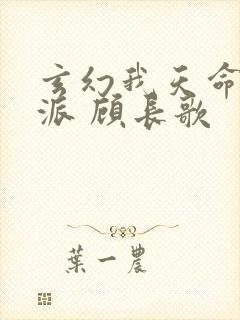 玄幻我天命
派 顾长歌
葉一農